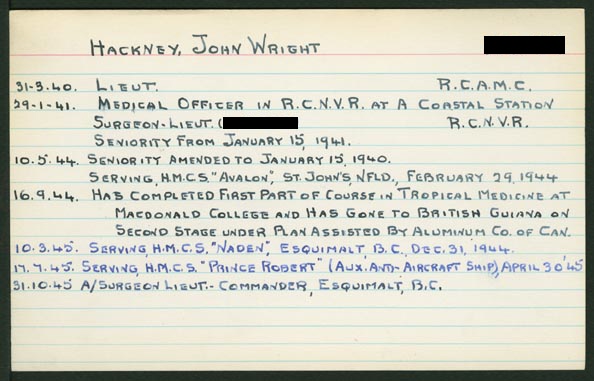 HACKNEY, JOHN WRIGHT
31-3.40. LIEUT. R.C.A.M.C.
29-1-41. MEDICAL OFFICER IN R.C.N.V.R. AT A COASTAL STATION
SURGEON-LIEUT. ( R.C.N.V.R.
SENIORITY FROM JANUARY 15, 1941.
10.5.44. SENIORITY AMENDED TO JANUARY 15, 1940.
SERVING, H.M.C.S. "AVALON", ST. JOHN'S, NFLD., FEBRUARY 29, 1944
16.9.44. HAS COMPLETED FIRST PART OF COURSE IN TROPICAL MEDICINE AT
MACDONALD COLLEGE AND HAS GONE TO BRITISH GUIANA ON
SECOND STAGE UNDER PLAN ASSISTED BY ALUMINUM CO. OF CAN.
10.3.45. SERVING, H.M.C.S. "NADEN", ESQUIMALT, B.C., DEC. 31, 1944.
17.7.45. SERVING, H.M.C.S. "PRINCE ROBERT" (AUX. ANTI-AIRCRAFT SHIP), APRIL 30'45
31.10.45 A/SURGEON LIEUT.-COMMANDER, ESQUIMALT, B.C.